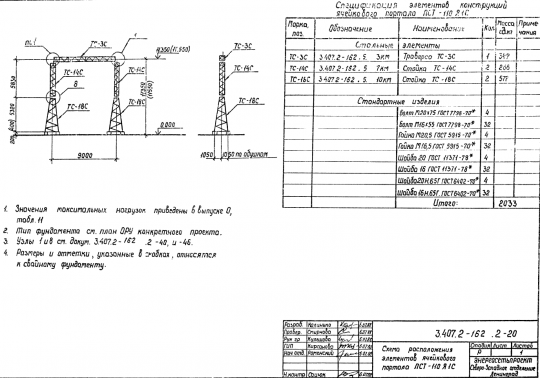 Спецификация элементов конструкций
ячейкового портала ПСТ-110 Я1С
Марка, поз.
Обозначение
Наименование
Кол.
Масса ед.кг
Приме чания
Стальные элементы
ТС-3С 3.407.2-162.5. 3КМ Траверса ТС-3С 1 349
ТС-14С 3.407.2-162.5. 7КМ Стойка ТС-14С 2
ТС-18С 3.407.2-162.5. 10КМ Стойка ТС-18С 2 577
Стандартные изделия
Болт М20х75 ГОСТ 7798-70* 4
Болт М16х55 ГОСТ 7798-70* 32
Гайка М20,5 ГОСТ 5915-70* 4
Гайка М16,5 ГОСТ 5915-70* 32
Шайба 20 ГОСТ 11371-78* 4
Шайба 16 ГОСТ 11371-78* 32
Шайба 20Н.65Г ГОСТ 6402-70* 4
Шайба 16Н.65Г ГОСТ 6402-70* 32
Итого: 2033
1
ТС-3С
ТС-14С
ТС-14С
ТС-14С
В
ТС-18С
ТС-18С
ТС-18С
0.000
9000
1050
1050 по обушкам
1. Значения максимальных нагрузок приведены в выпуске 0,
табл. 11
2. Тип фундамента см. план ОРУ конкретного проекта.
3. Узлы 1 и В см. докум. 3.407.2-162 .2-40, и -46.
4. Размеры и отметки, указанные в скобках, относятся
к свайному фундаменту.
3.407.2-162 .2-20
Разраб. Калинина
Провер. Смирнова
Рук гр. Кулешова
ГИП
Нач.отд. Роменский
Н.контр
Схема расположения
элементов ячейкового
портала ПСТ-110 Я1С
Стадия Лист Листов
Р 1
Энергосетьпроект
Северо-Западное отделение
Ленинград